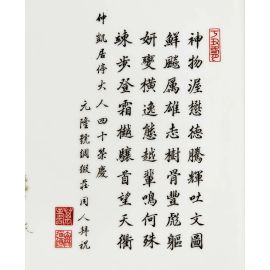 神物渥懋德騰輝吐文圖
鮮飈属雄志樹骨豐彪軀
妍變橫逸態越輩鳴何殊
竦步登霜樾驤首望天衢
仲凱居停大人四十榮慶
元隆號綢緞莊同人拜祝